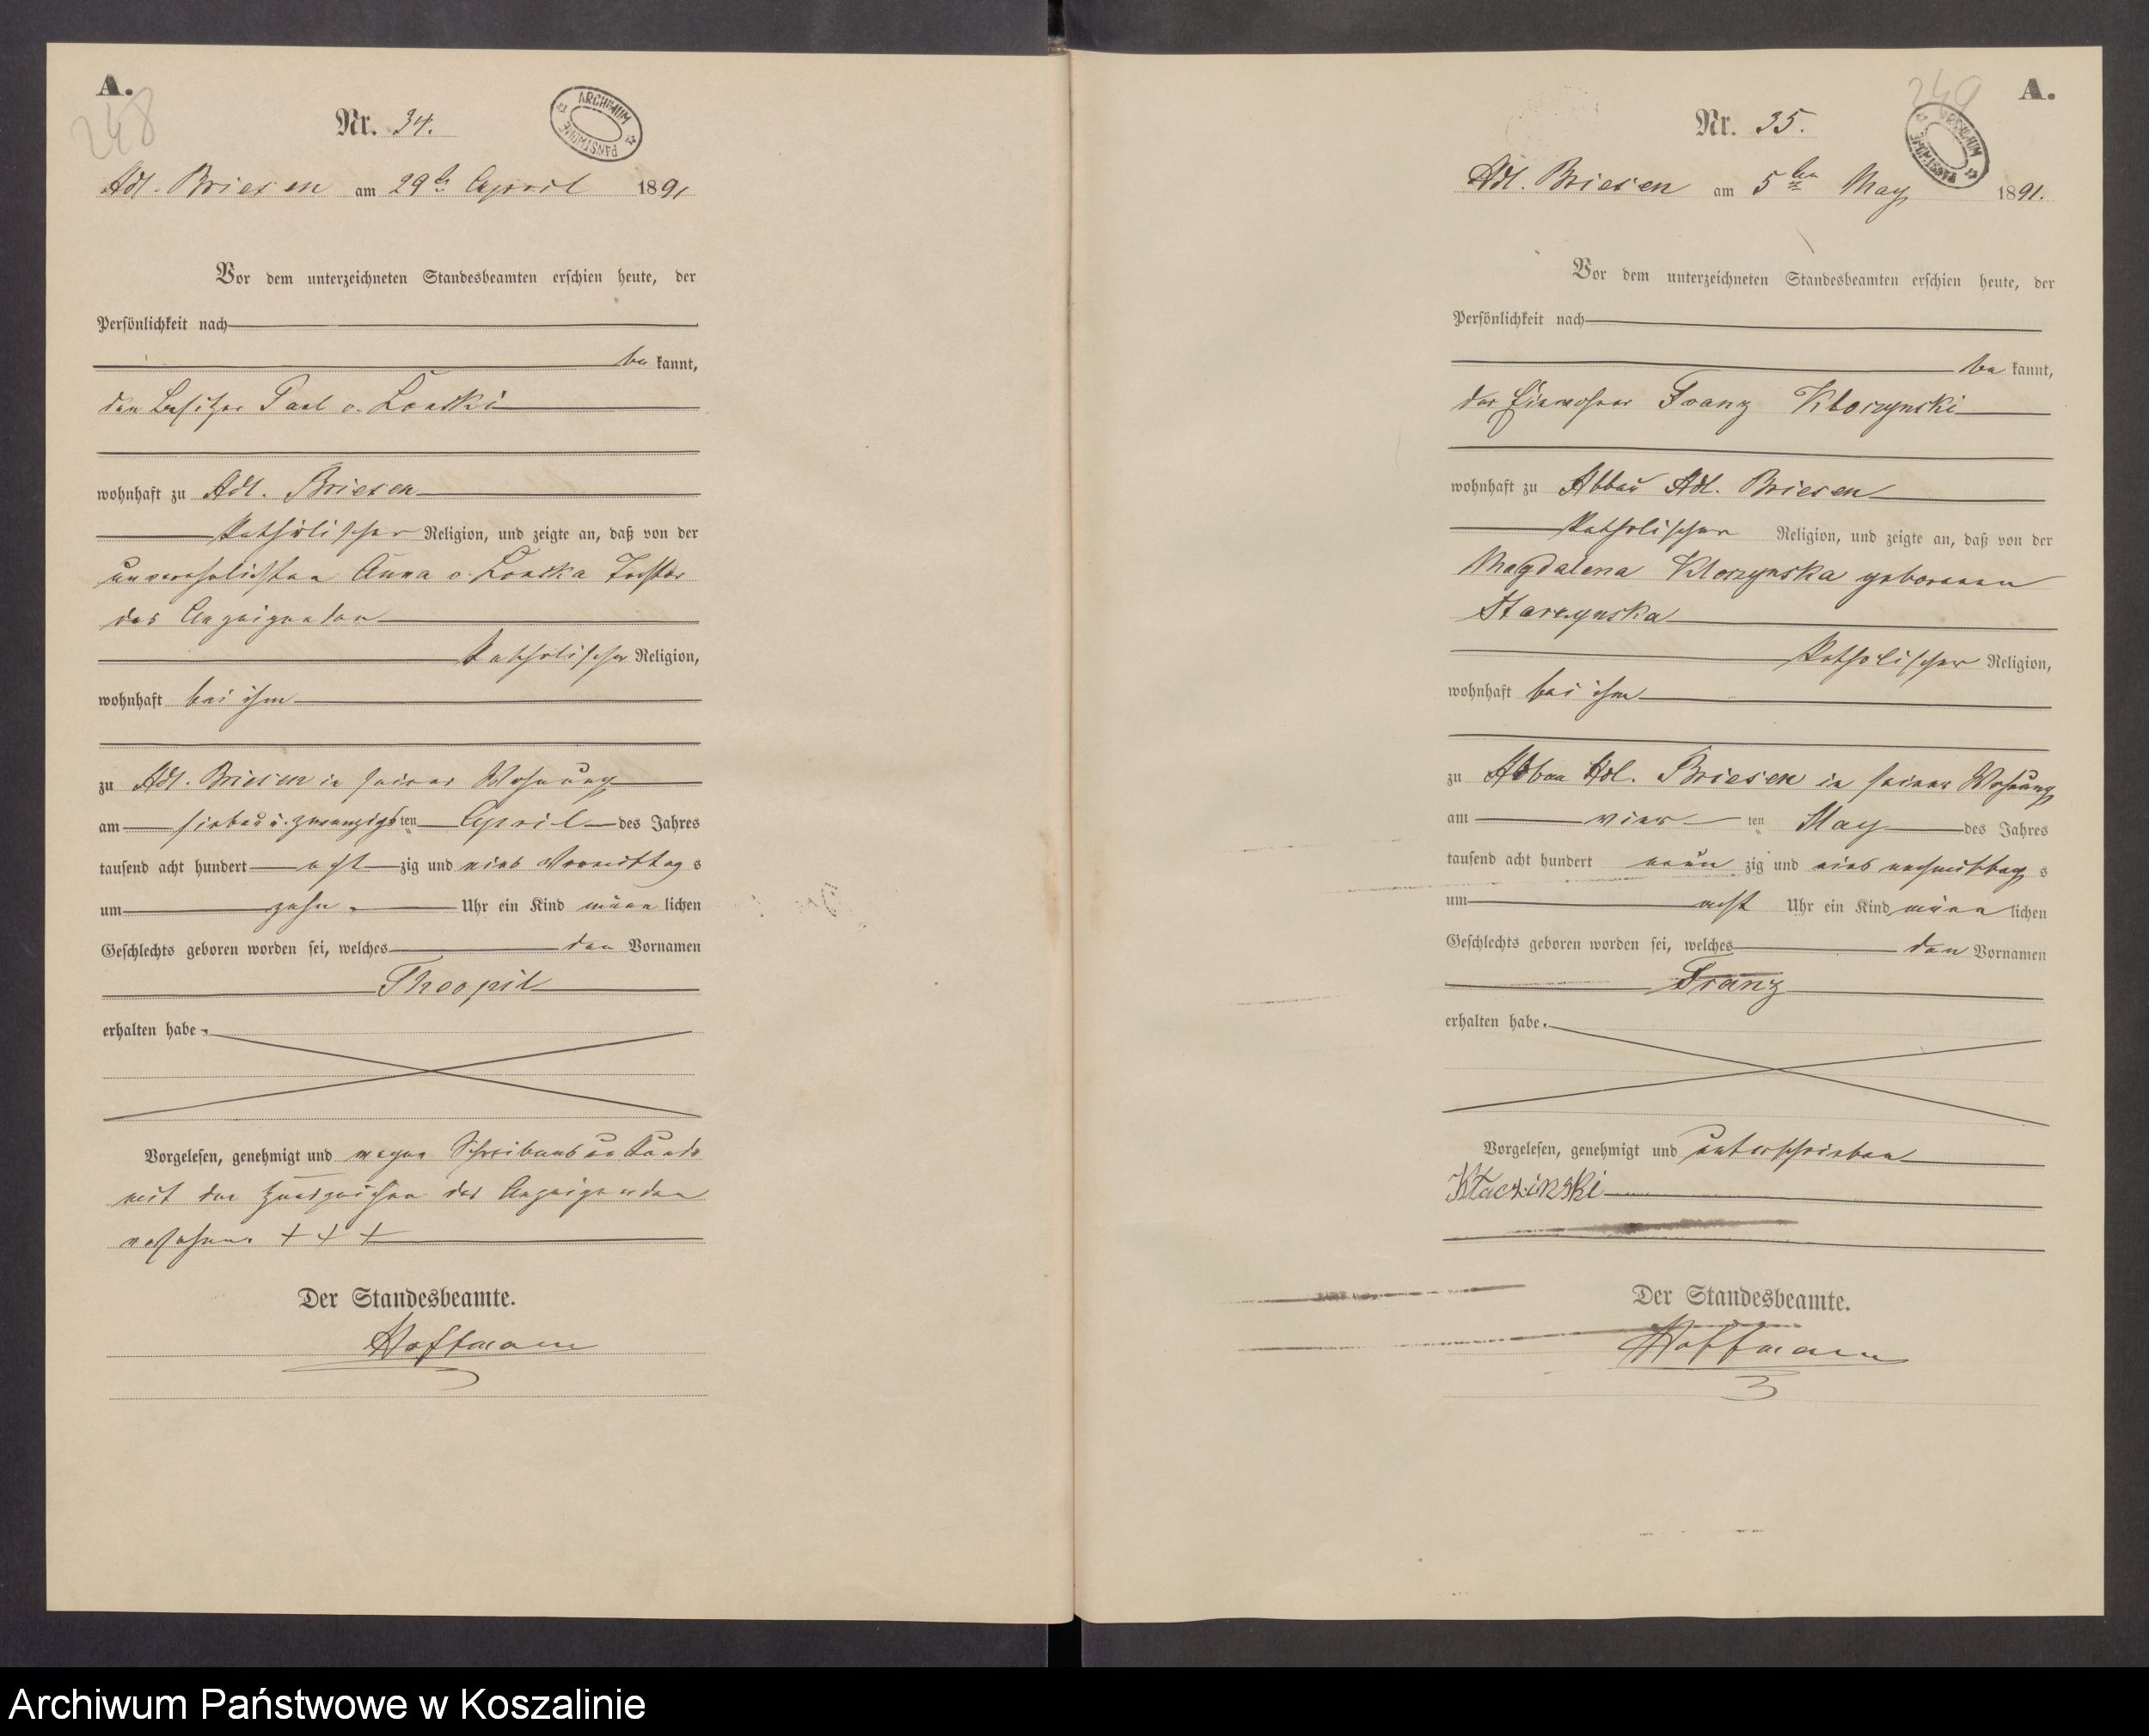 A.
248
Nr. 34.
ARCHIWUM PAŃSTWOWE
Adl. Briesen am 29ten April 1891
Vor dem unterzeichneten Standesbeamten erschien heute, der
Persönlichkeit nach
be kannt,
der Besitzer Paul v.
wohnhaft zu Adl. Briesen
katholischer Religion, und zeigte an, daß von der
unverehelichten Anna v. Tochter
des Anzeigenden
katholischer Religion,
wohnhaft bei ihm
zu Adl. Briesen in seiner Wohnung
am sieben u. zwanzigsten April des Jahres
tausend acht hundert acht zig und eins Vormittag s
um zehn Uhr ein Kind männ lichen
Geschlechts geboren worden sei, welches den Vornamen
Theopil
erhalten habe.
Vorgelesen, genehmigt und wegen Schreibensunkunde
mit den Handzeichen des Anzeigenden
versehen. + + +
Der Standesbeamte.
Hoffmann
A.
249
Nr. 35.
Adl. Briesen am 5ten May 1891.
Vor dem unterzeichneten Standesbeamten erschien heute, der
Persönlichkeit nach
be kannt,
der Einwohner Franz
wohnhaft zu Abbau Adl. Briesen
katholischer Religion, und zeigte an, daß von der
Magdalena geborenen
katholischer Religion,
wohnhaft bei ihm
zu Abbau Adl. Briesen in seiner Wohnung
am vier ten May des Jahres
tausend acht hundert neun zig und eins nachmittag s
um acht Uhr ein Kind männ lichen
Geschlechts geboren worden sei, welches den Vornamen
Franz
erhalten habe.
Vorgelesen, genehmigt und unterschrieben
Der Standesbeamte.
Hoffmann
Archiwum Państwowe w Koszalinie